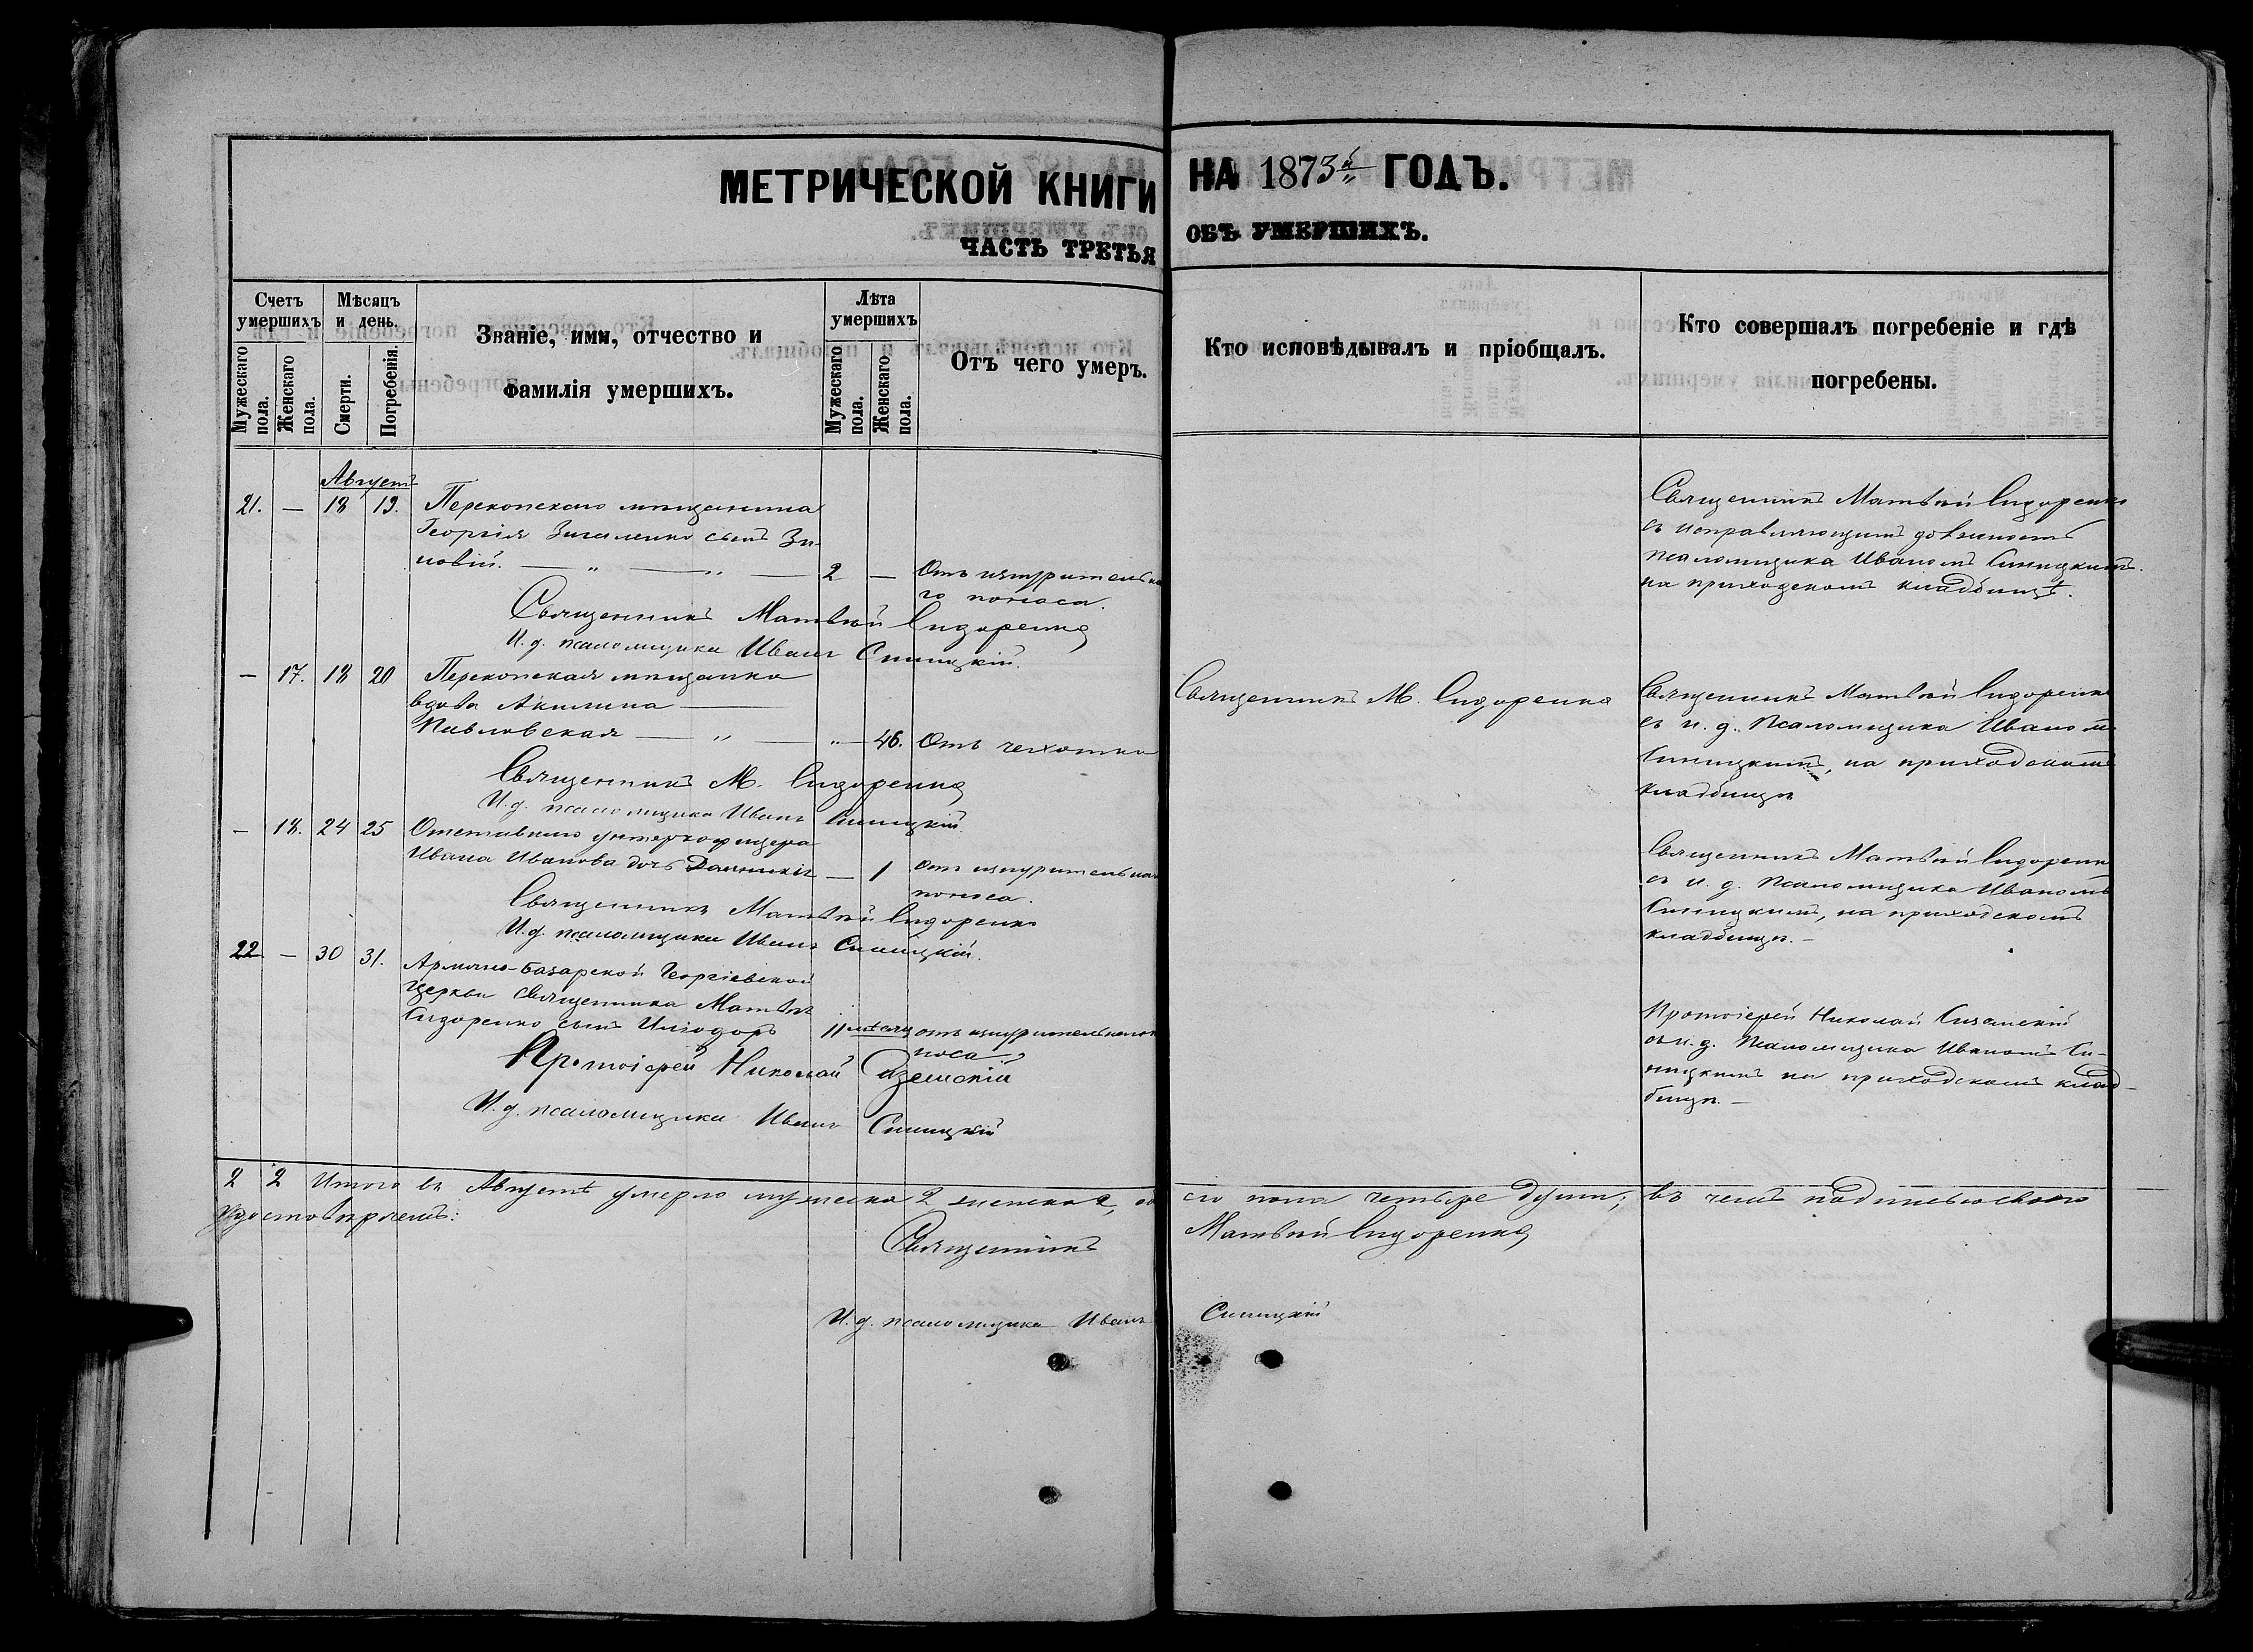 МЕТРИЧЕСКОЙ КНИГИ
ЧАСТЬ ТРЕТЬЯ
Счетъ умершихъ
Мѣсяцъ и день.
Званіе, имя, отчество и
фамилія умершихъ.
Лѣта умершихъ
Отъ чего умеръ.
Мужескаго пола.
Женскаго пола.
Смерти.
Погребенія.
Мужескаго пола.
Женскаго пола.
Августъ
21. — 18 19. Перекопскаго мѣщанина
Георгія сынъ Зи-
новій. — „ — „ — 2 — Отъ изнурительна
го поноса.
Священникъ Матвѣй Сидоренко
И. д. псаломщика Иванъ Синицкій.
— 17. 18 20 Перекопская мѣщанка
вдова Акилина —
Павловская — „ — „ — 46. Отъ чахотки
Священникъ М. Сидоренко
И. д. псаломщика Иванъ Синицкій.
— 18. 24 25 Отставнаго унтеръ-офицера
Ивана Иванова дочь — 1 отъ изнурительнаго
поноса.
Священникъ Матвѣй Сидоренко
И. д. псаломщика Иванъ Синицкій.
22 — 30 31. Армяно-Базарской Георгіевской
церкви священника Матвѣя
Сидоренко сынъ Иліодоръ 11 мѣсяц отъ изнурительнаго по
носа.
Протоіерей Николай
И. д. псаломщика Иванъ Синицкій
2 2 Итого въ Августѣ умерло мужеска 2 женска 2, обо
удостовѣряемъ:
Священникъ
И. д. псаломщика Иванъ
НА 1873й ГОДЪ.
ОБЪ УМЕРШИХЪ.
Кто исповѣдывалъ и пріобщалъ.
Кто совершалъ погребеніе и гдѣ
погребены.
Священникъ Матвѣй Сидоренко
съ исправляющимъ должность
псаломщика Иваномъ Синицкимъ.
на приходскомъ кладбищѣ.
Священникъ М. Сидоренко
Священникъ Матвѣй Сидоренко
съ и. д. Псаломщика Иваномъ
Синицкимъ, на приходскомъ
кладбищѣ
Священникъ Матвѣй Сидоренко
съ и. д. Псаломщика Иваномъ
Синицкимъ, на приходскомъ
кладбищѣ. —
Протоіерей Николай
съ и. д. Псаломщика Иваномъ Си-
ницкимъ на приходскомъ клад-
бищѣ. —
его пола четыре души; въ чемъ подписью своею
Матвѣй Сидоренко
Синицкій